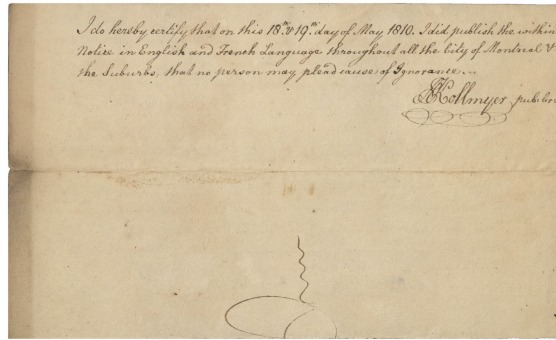 I do hereby certify that on this 18th & 19th day of May 1810. I did publish the within
Notice in English and French Language throughout all the City of Montreal &
the Suburbs, that no person may plead cause of Ignorance...
Kollmyer